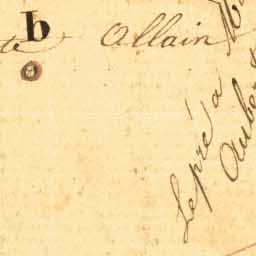 b
te Allain
Le pré a M
Auber